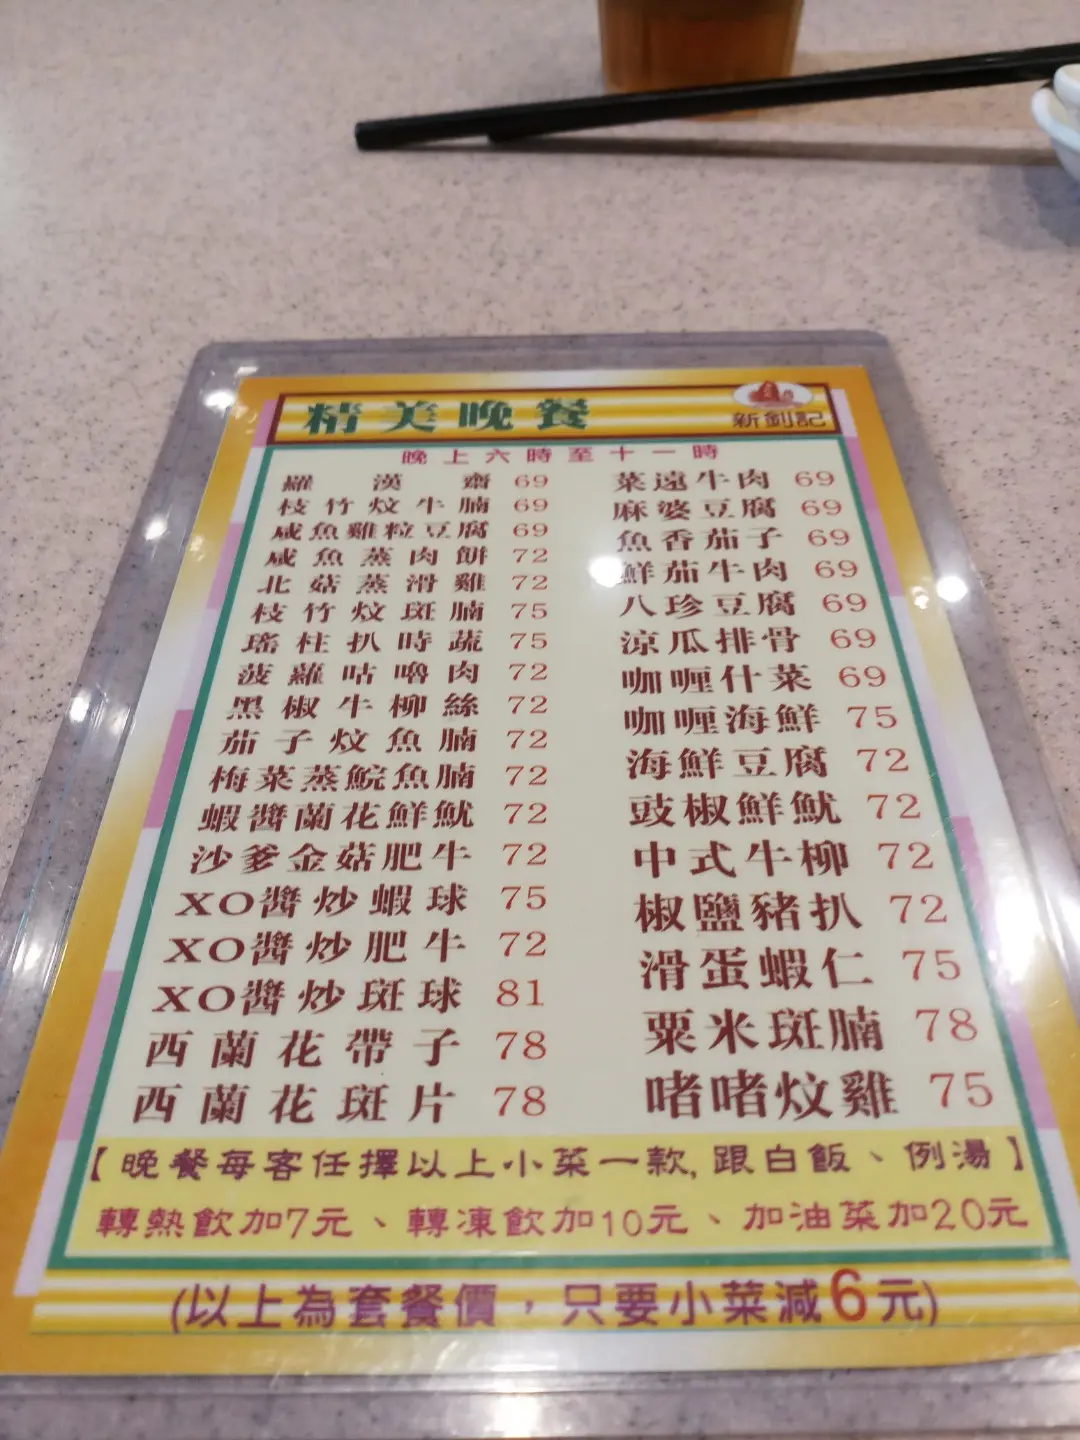 精美晚餐
新釗記
晚上六時至十一時
羅漢齋 69
枝竹炆牛腩 69
咸魚雞粒豆腐 69
咸魚蒸肉餅 72
北菇蒸滑雞 72
枝竹炆斑腩 75
瑤柱扒時蔬 75
菠蘿咕嚕肉 72
黑椒牛柳絲 72
茄子炆魚腩 72
梅菜蒸鯇魚腩 72
蝦醬蘭花鮮魷 72
沙爹金菇肥牛 72
XO醬炒蝦球 75
XO醬炒肥牛 72
XO醬炒斑球 81
西蘭花帶子 78
西蘭花斑片 78
菜遠牛肉 69
麻婆豆腐 69
魚香茄子 69
鮮茄牛肉 69
八珍豆腐 69
涼瓜排骨 69
咖喱什菜 69
咖喱海鮮 75
海鮮豆腐 72
豉椒鮮魷 72
中式牛柳 72
椒鹽豬扒 72
滑蛋蝦仁 75
粟米斑腩 78
啫啫炆雞 75
【晚餐每客任擇以上小菜一款,跟白飯、例湯】
轉熱飲加7元、轉凍飲加10元、加油菜加20元
(以上為套餐價，只要小菜減6元)